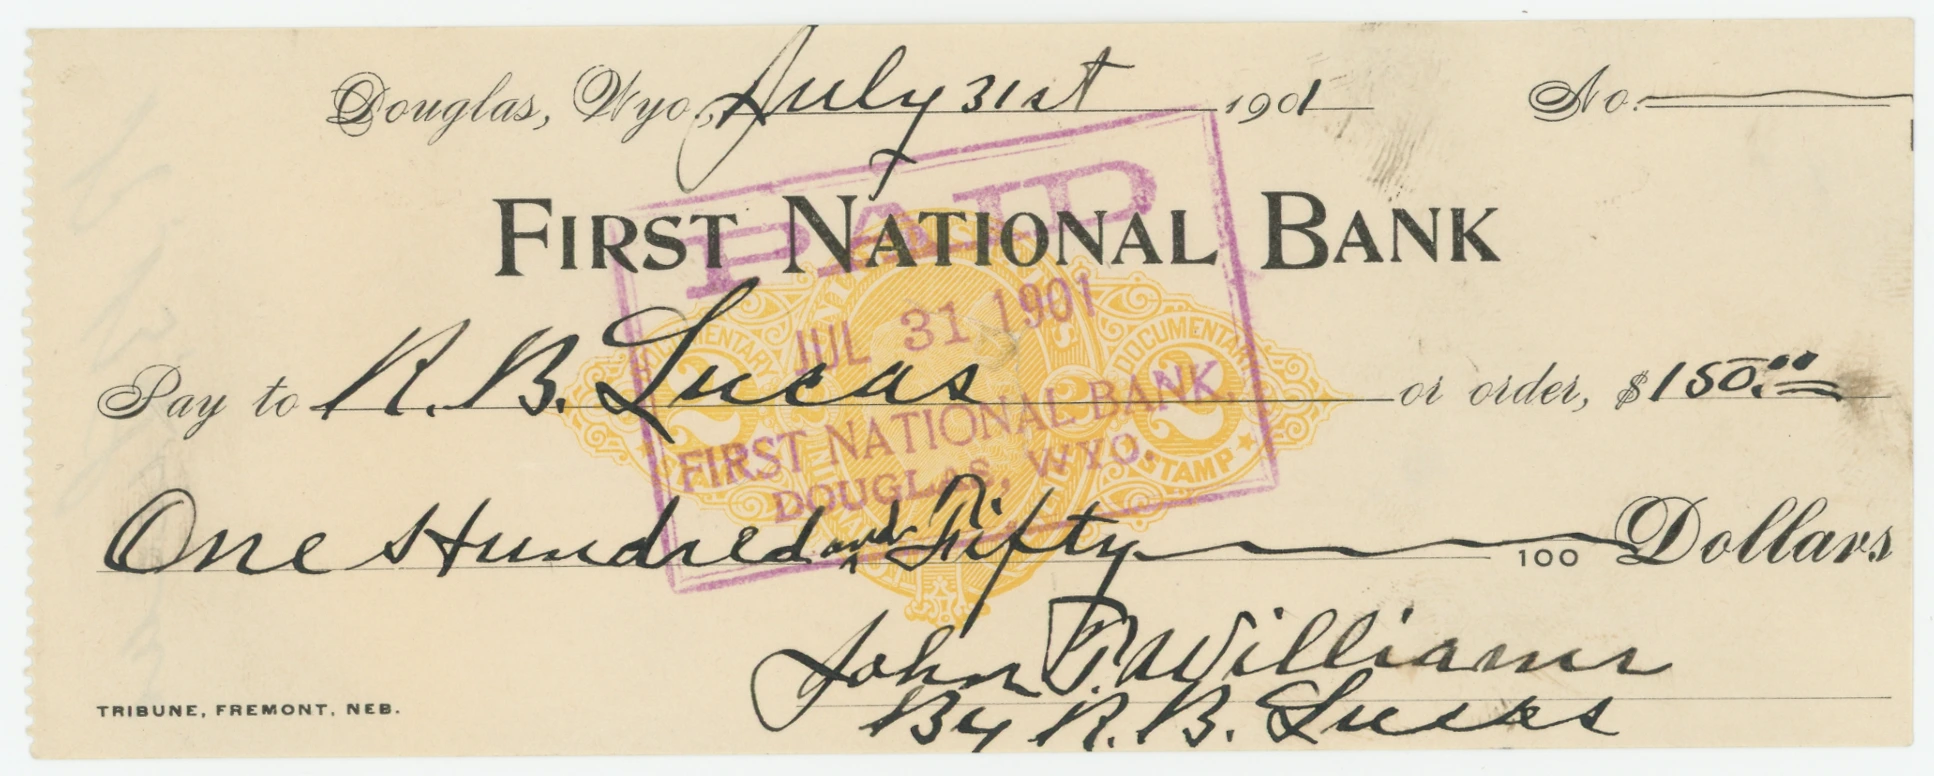 Douglas, Wyo., July 31st 1901 No.
FIRST NATIONAL BANK
PAID
JUL 31 1901
FIRST NATIONAL BANK,
DOUGLAS, WYO.
DOCUMENTARY DOCUMENTARY
2 2
STAMP
Pay to R. B. Lucas or order, $150.00
One Hundred and Fifty 100 Dollars
John T. Williams
By R. B. Lucas
TRIBUNE, FREMONT, NEB.